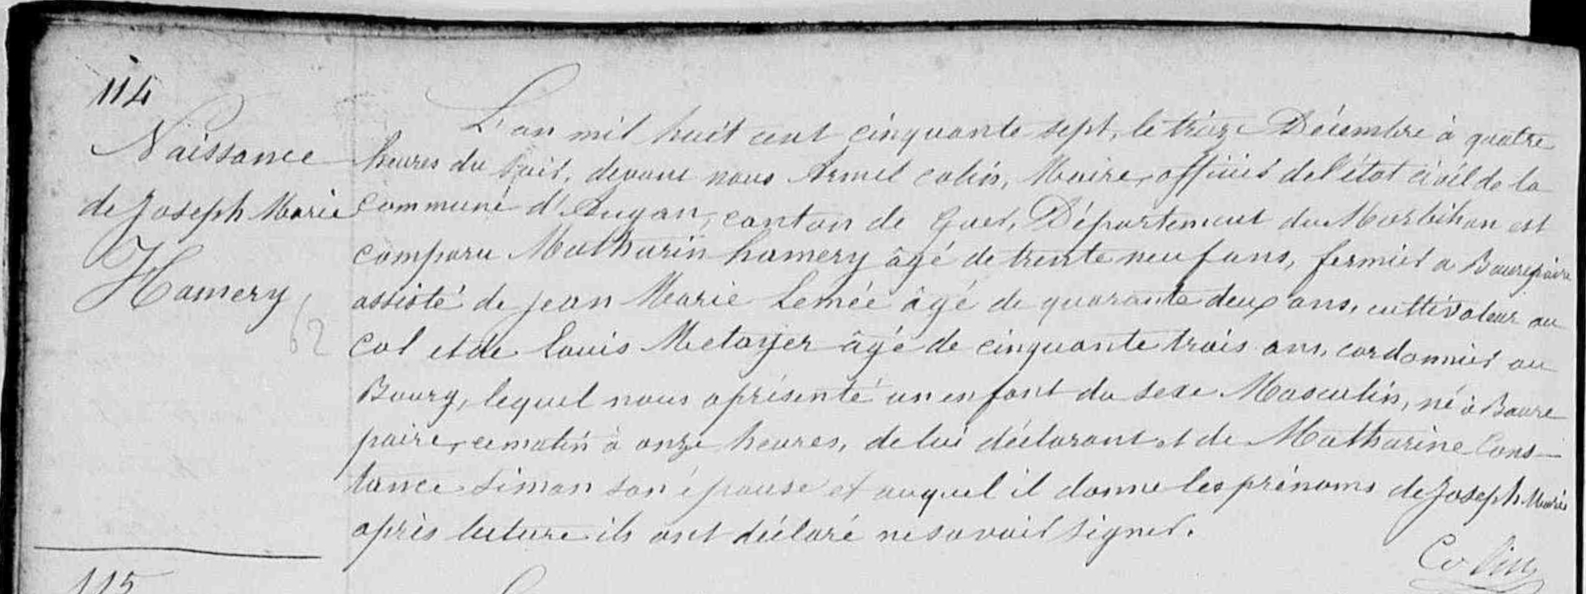 114
Naissance
de Joseph Marie
Hamery
62
L'an mil huit cent cinquante sept, le treize Décembre à quatre
heures du soir, devant nous Armel Colin, Maire, officier de l'état civil de la
commune d'Augan, canton de Guer, Département du Morbihan est
comparu Mathurin hamery âgé de trente neuf ans, fermier a Beaurepaire
assisté de jean Marie Lemée âgé de quarante deux ans, cultivateur au
Col et de Louis Metayer âgé de cinquante trois ans, cordonnier au
Bourg, lequel nous a présenté un enfant du sexe Masculin, né à Beaure
paire, ce matin à onze heures, de lui déclarant et de Mathurine Cons-
tance Simon son épouse et auquel il donne les prénoms de Joseph Marie
après lecture ils ont déclaré ne savoir signer.
Colin
115